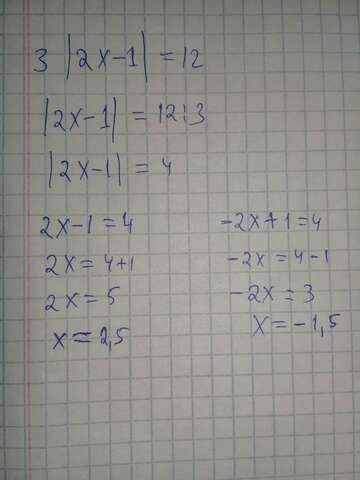 3 |2x-1| = 12
|2x-1| = 12:3
|2x-1| = 4
2x-1=4
2x=4+1
2x=5
x=2,5
-2x+1=4
-2x=4-1
-2x=3
x=-1,5